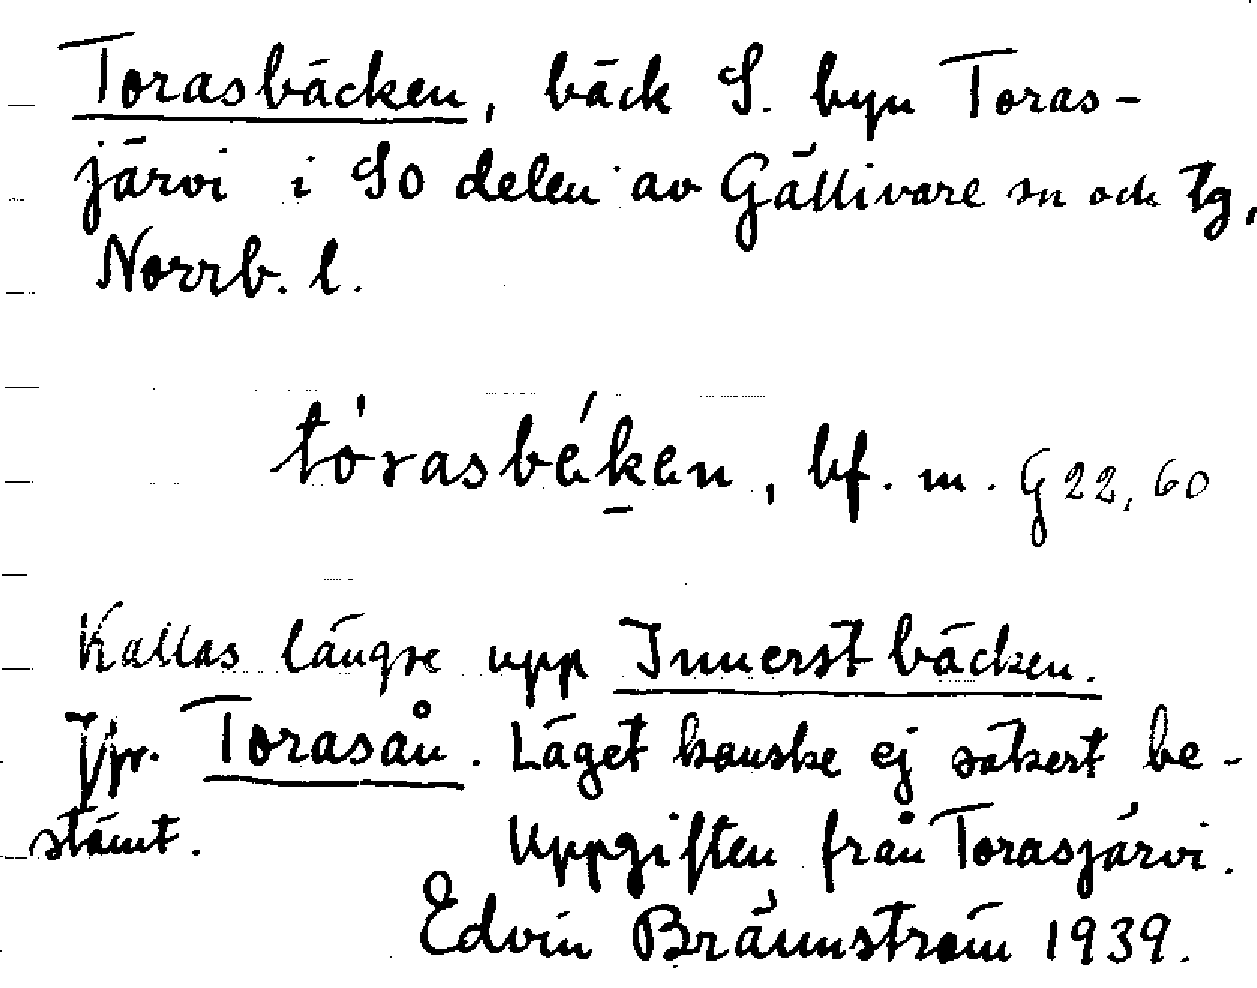 Torasbäcken, bäck S. byn Toras-
järvi i SO delen av Gällivare sn och tg,
Norrb. l.
tórasbéken, bf. m. G 22, 60
Kallas längre upp Innerstbäcken.
Jfr. Torasån. Läget kanske ej säkert be-
stämt. Uppgiften från Torasjärvi.
Edvin Brännström 1939.